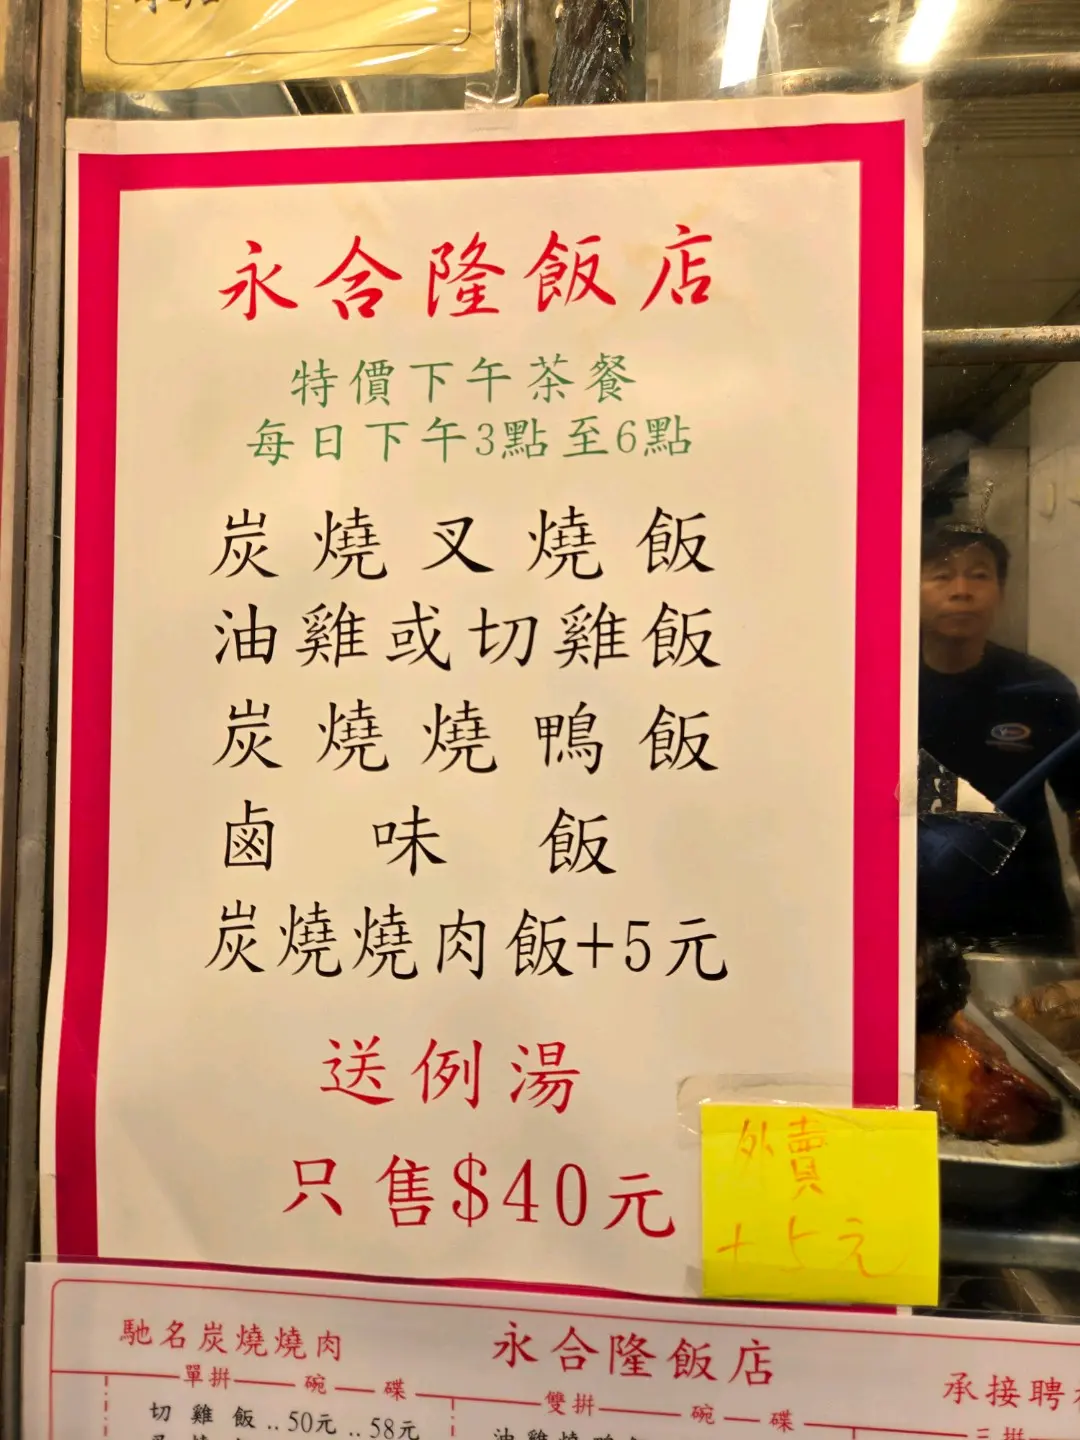 永合隆飯店
特價下午茶餐
每日下午3點至6點
炭燒叉燒飯
油雞或切雞飯
炭燒燒鴨飯
鹵味飯
炭燒燒肉飯+5元
送例湯
只售$40元
外賣
+5元
馳名炭燒燒肉
永合隆飯店
承接聘
單拼 碗 碟
雙拼 碗 碟
三拼
切雞飯..50元..58元